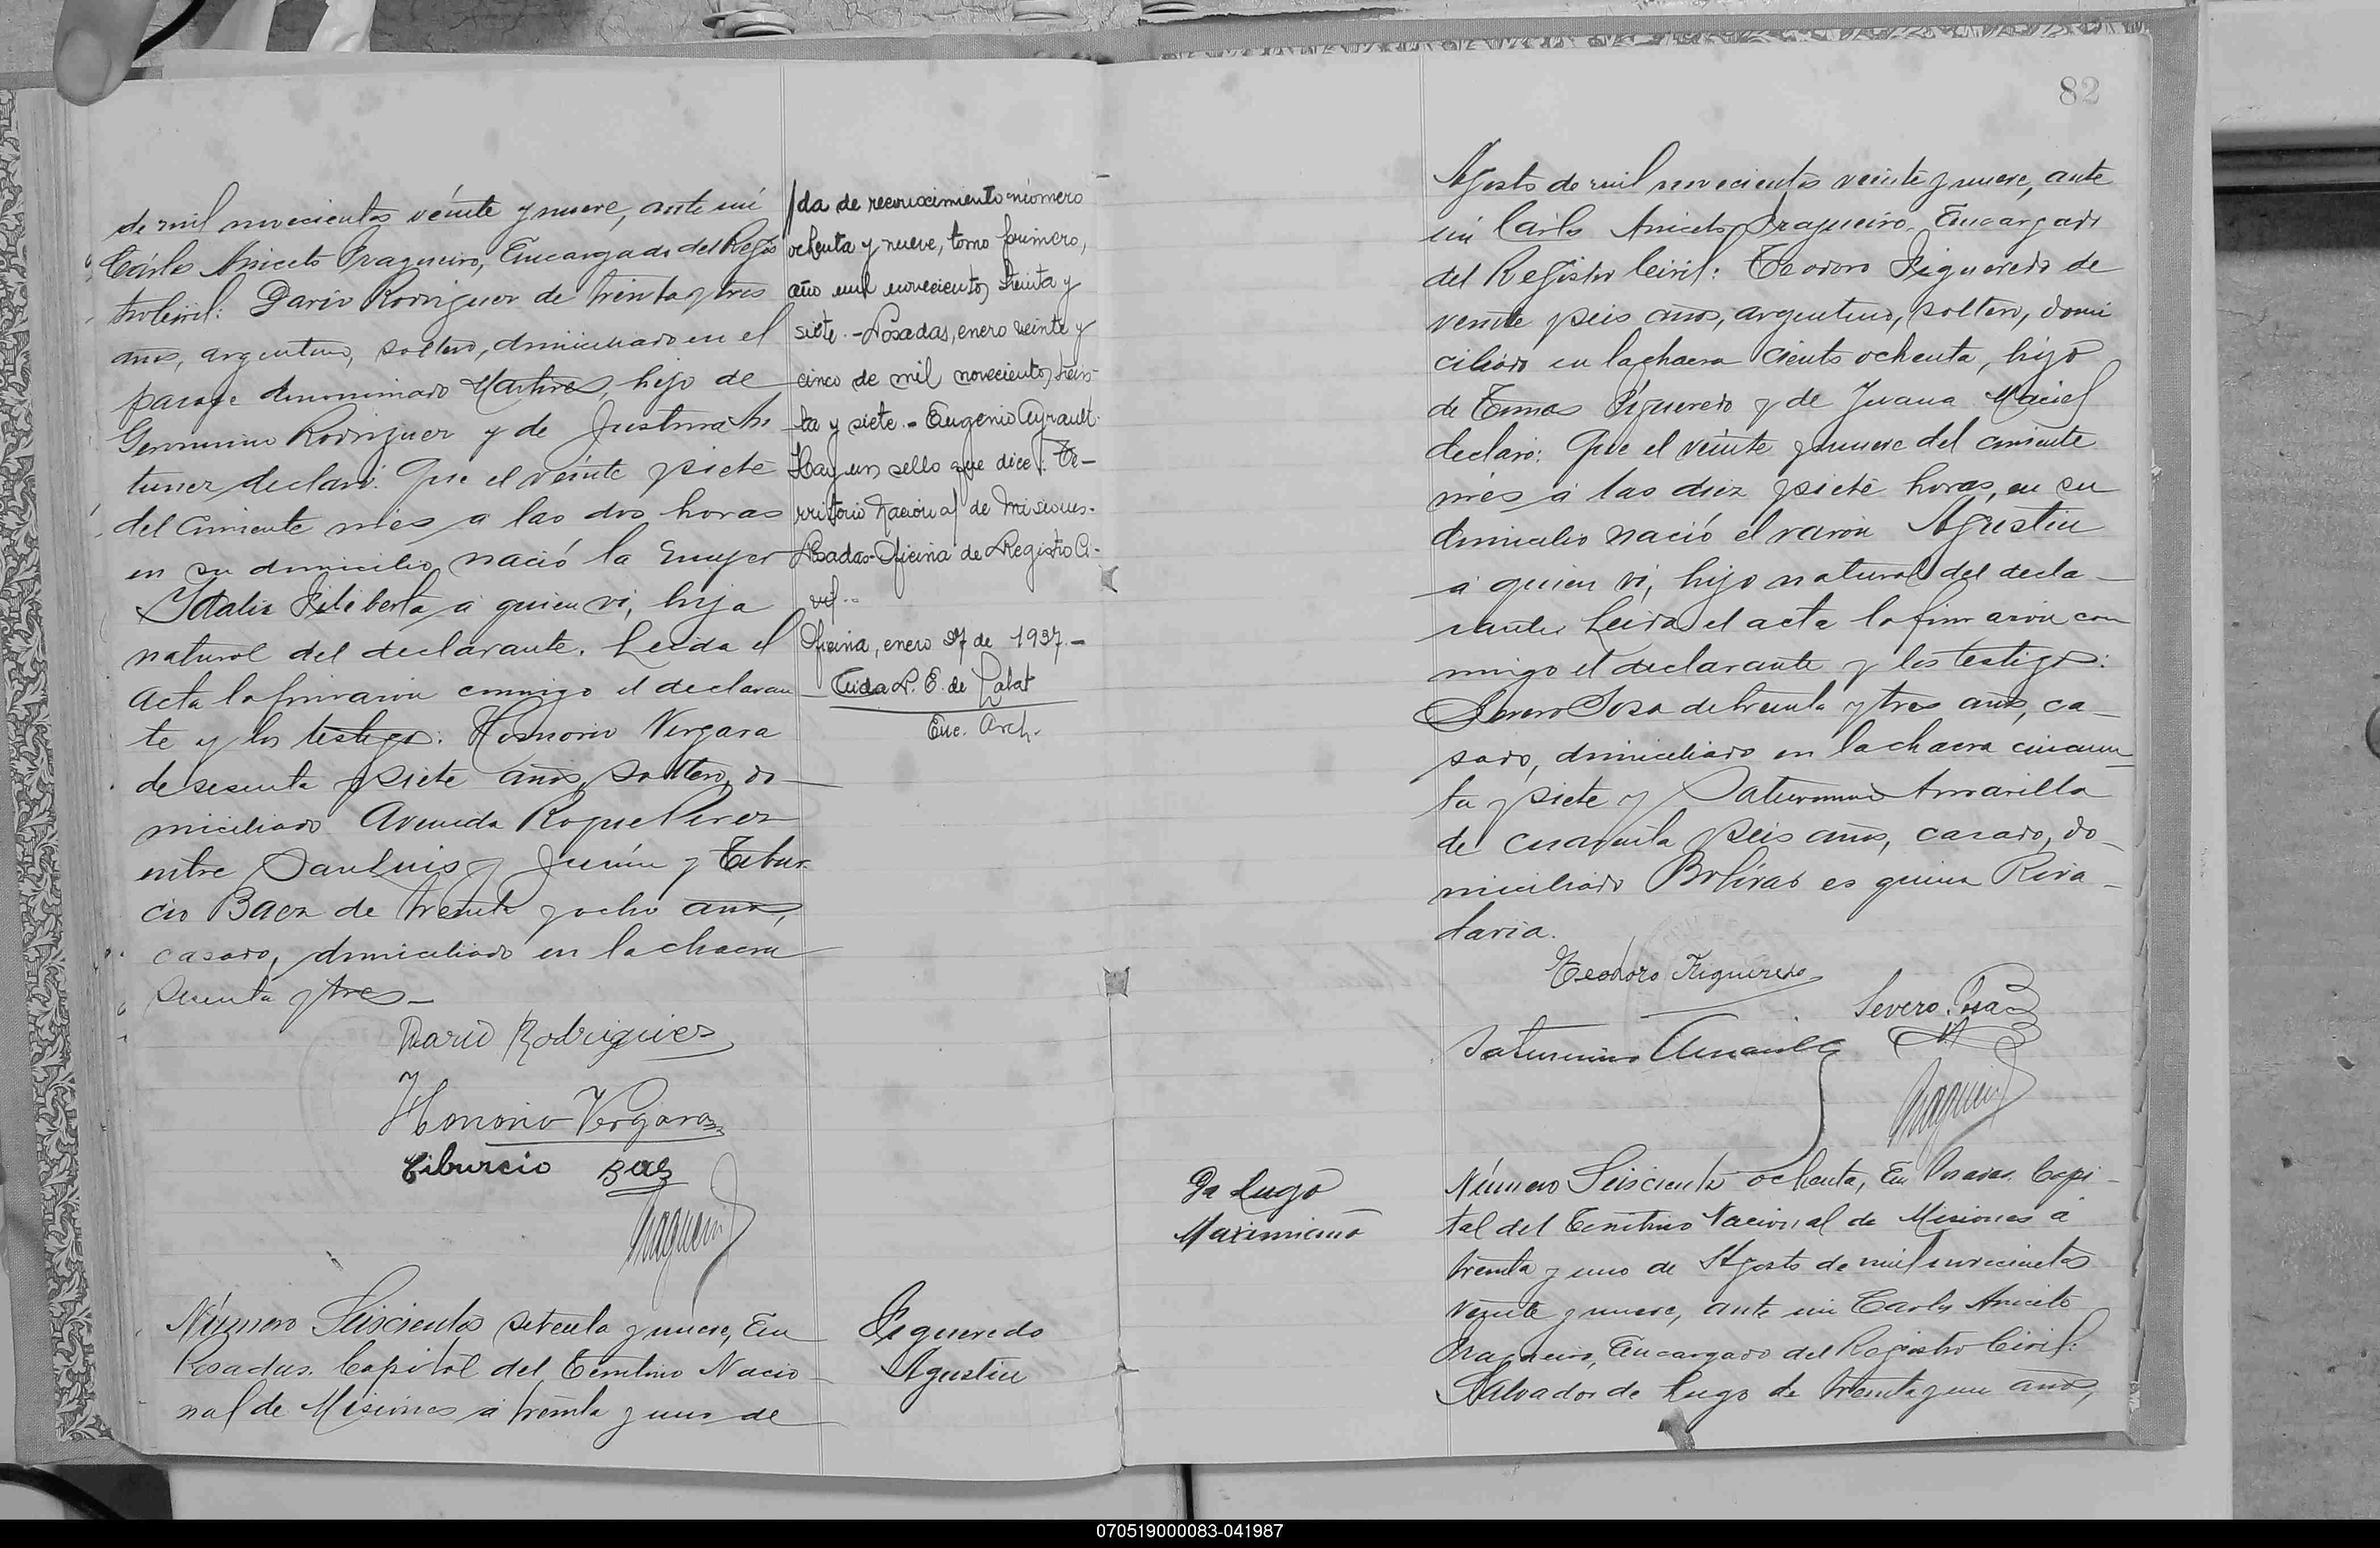 de mil novecientos veinte y nueve, ante mi
Cárlos Aniceto Fragueiro, Encargado del Regis
tro Civil: Dario Rodriguez de treinta y tres
años, argentino, soltero, domiciliado en el
paraje denominado Martires, hijo de
Rodriguez y de Justina
declaró: Que el veinte y siete
del corriente mes a las dos horas
en su domicilio nació la mujer
Idalia Filiberta á quien vi, hija
natural del declarante. Leida el
acta la firmaron conmigo el declaran
te y los testigos: Honorio Vergara
de sesenta y siete años, soltero, do
miciliado Avenida Roque Perez
entre San Luis y Junín y Tibur
cio Baez de treinta y ocho años,
casado, domiciliado en la chacra
sesenta y tres—
Dario Rodriguez
Honorio Vergara
Tiburcio Baez
Fragueiro
Número Seiscientos setenta y nueve, En
Posadas. Capital del Territorio Nacio
nal de Misiones á treinta y uno de
/da de reconocimiento número
ochenta y nueve, tomo primero,
año mil novecientos treinta y
siete.-Posadas, enero veinte y
cinco de mil novecientos trein-
ta y siete.- Eugenio Ayrault.
Hay un sello que dice: Te-
rritorio Nacional de Misiones.
Posadas-Oficina de Registro Ci-
vil.-
Oficina, enero 27 de 1937.-
Enc. Arch.
Figueredo
Agustin
82
Agosto de mil novecientos veinte y nueve, ante
mi Carlos Aniceto Fragueiro, Encargado
del Registro Civil: Teodoro Figueredo de
veinte y seis años, argentino, soltero, domi
ciliado en la chacra ciento ochenta, hijo
de Tomas Figueredo y de Juana Maciel
declaró: Que el veinte y nueve del corriente
mes á las diez y siete horas, en su
domicilio nació el varón Agustin
á quien vi, hijo natural del decla—
rante. Leida el acta la firmaron con
migo el declarante y los testigos:
Severo Sosa de treinta y tres años, ca—
sado, domiciliado en la chacra cincuen
ta y siete y Saturnino Amarilla
de cuarenta y seis años, casado, do—
miciliado Bolívar esquina Riva—
davia.
Teodoro Figueredo
Severo Sosa
Saturnino Amarilla
Fragueiro
Da Lugo
Maximiano
Número Seiscientos ochenta, En Posadas. Capi—
tal del Territorio Nacional de Misiones á
treinta y uno de Agosto de mil novecientos
veinte y nueve, ante mi Carlos Aniceto
Fragueiro, Encargado del Registro Civil:
Salvador de Lugo de treinta y un años,
070519000083-041987